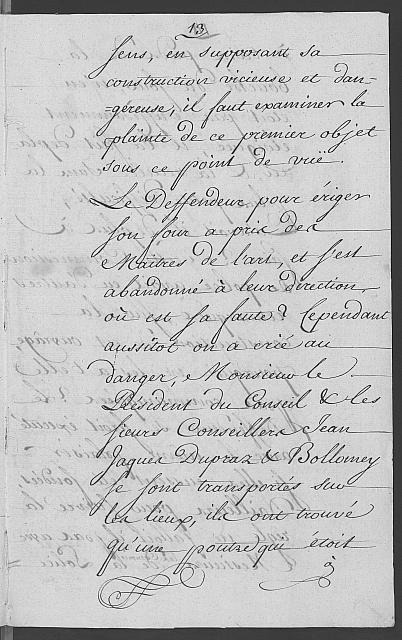 13.
sens, en supposant sa
construction vicieuse et dan-
-géreuse, il faut examiner la
plainte de ce premier objet
sous ce point de vüe.
Le Deffendeur pour ériger
son four a pris des
Maitres de l'art, et s'est
abandonné à leur direction,
où est sa faute? Cependant
aussitot on a crié au
danger, Monsieur le
Président du Conseil & les
sieurs Conseillers Jean
Jaques Dupraz & Bollomey
se sont transportés sur
les lieux, ils ont trouvé
qu'une poutre qui étoit
à